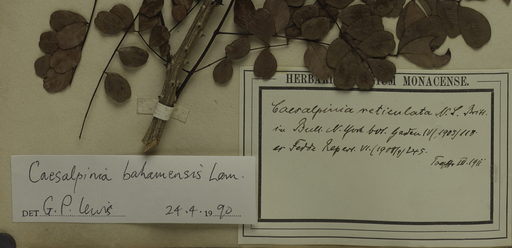 HERBARIUM MONACENSE.
Caesalpinia reticulata N. L. Britt.
in Bull. N. York bot. Garden IV (1905) 118
Fedde Repert. VI. (1909) 245.
Caesalpinia bahamensis Lam.
DET. G. P. Lewis 24.4.1990